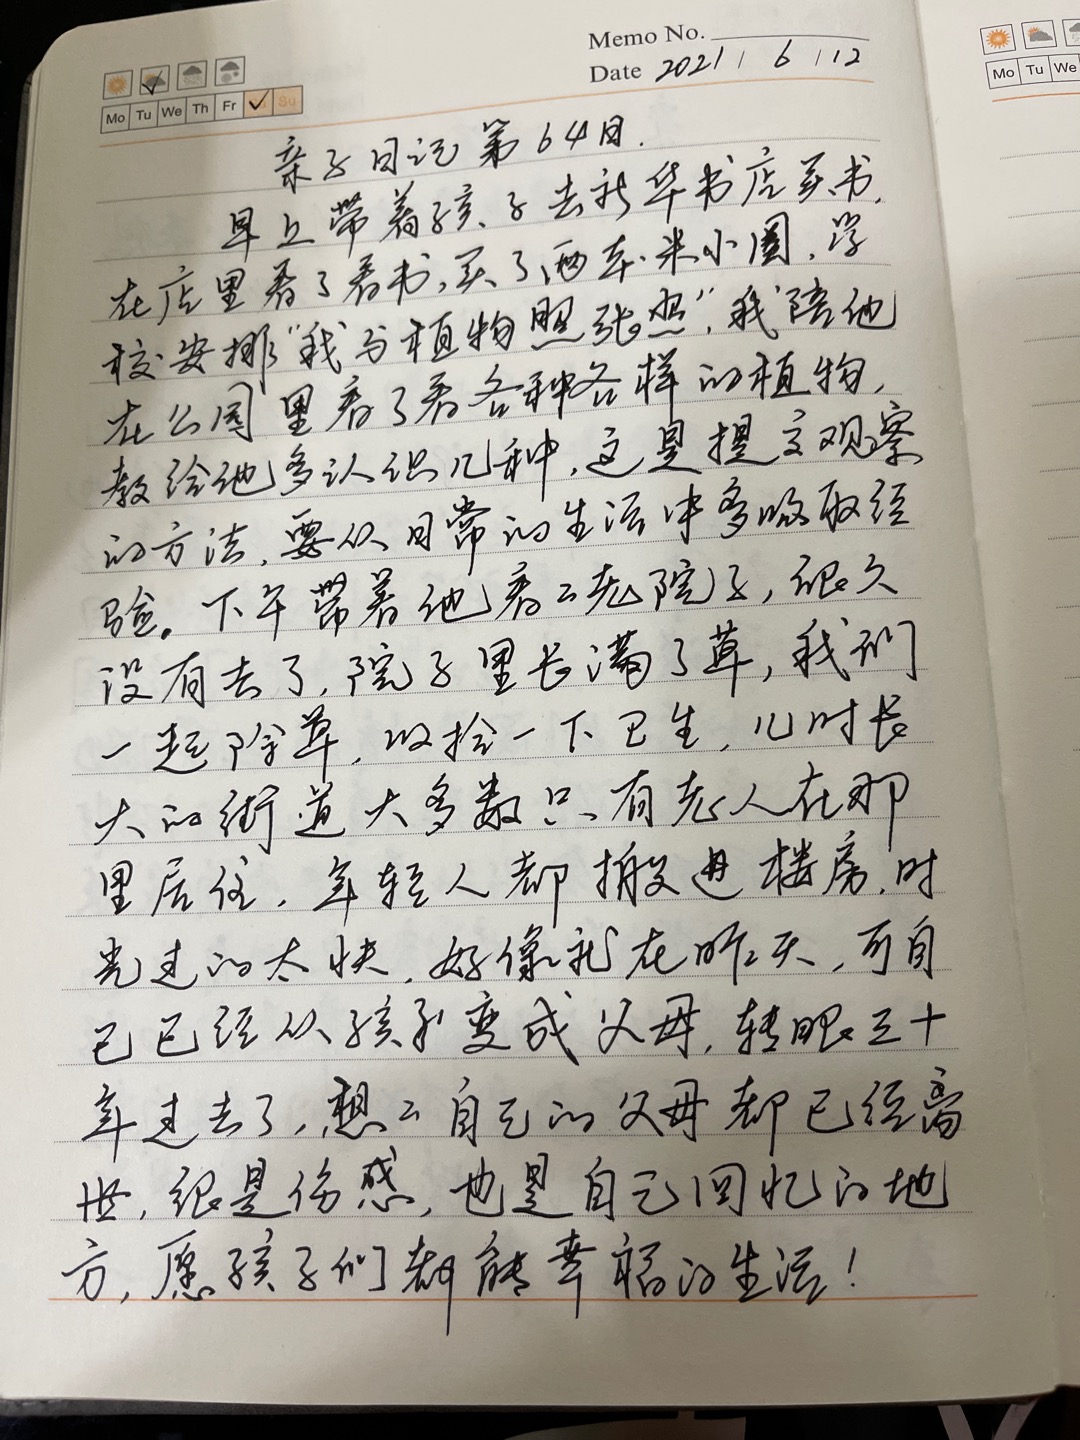 Memo No.
Date 2021 / 6 / 12
Mo Tu We Th Fr Su
Mo Tu We
亲子日记第64日.
早上带着孩子去新华书店买书,
在店里看了看书,买了两本米小圈,学
校安排“我与植物照张照”,我陪他
在公园里看了看各种各样的植物,
教给他多认识几种,这是提高观察
的方法,要从日常的生活中多吸取经
验。下午带着他看看老院子,很久
没有去了,院子里长满了草,我们
一起除草,收拾一下卫生,儿时长
大的街道大多数只有老人在那
里居住,年轻人都搬进楼房,时
光过的太快,好像就在昨天,可自
己已经从孩子变成父母,转眼三十
年过去了,想想自己的父母都已经离
世,很是伤感,也是自己回忆的地
方,愿孩子们都能幸福的生活!